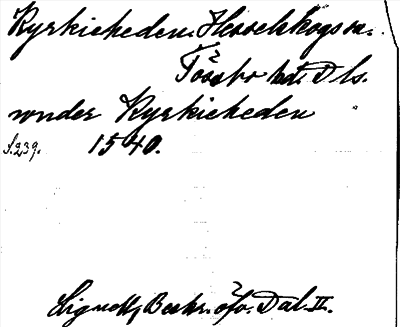 Kyrkieheden. Hesselskogs sn.
Tössbo hd. Dls.
under Kyrkieheden
S. 239. 1540.
Lignell, Beskr. öfv. Dal. II.